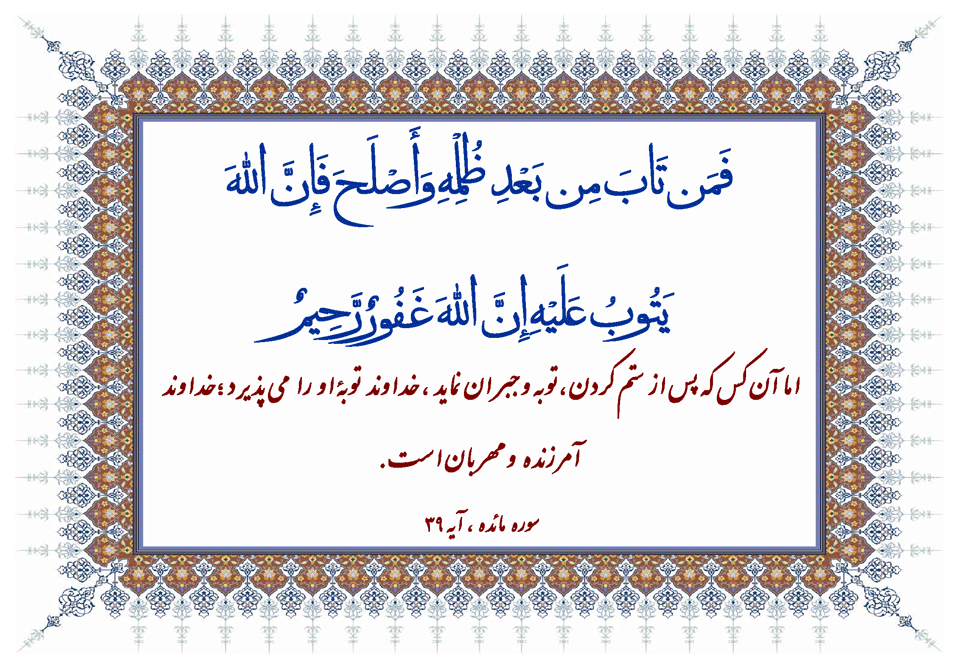 فَمَن تَابَ مِن بَعْدِ ظُلْمِهِ وَأَصْلَحَ فَإِنَّ اللَّهَ
يَتُوبُ عَلَيْهِ إِنَّ اللَّهَ غَفُورٌ رَّحِيمٌ
اما آن کس که پس از ستم کردن، توبه و جبران نماید، خداوند توبۀ او را می‌پذیرد؛ خداوند
آمرزنده و مهربان است.
سوره مائده ، آیه ۳۹